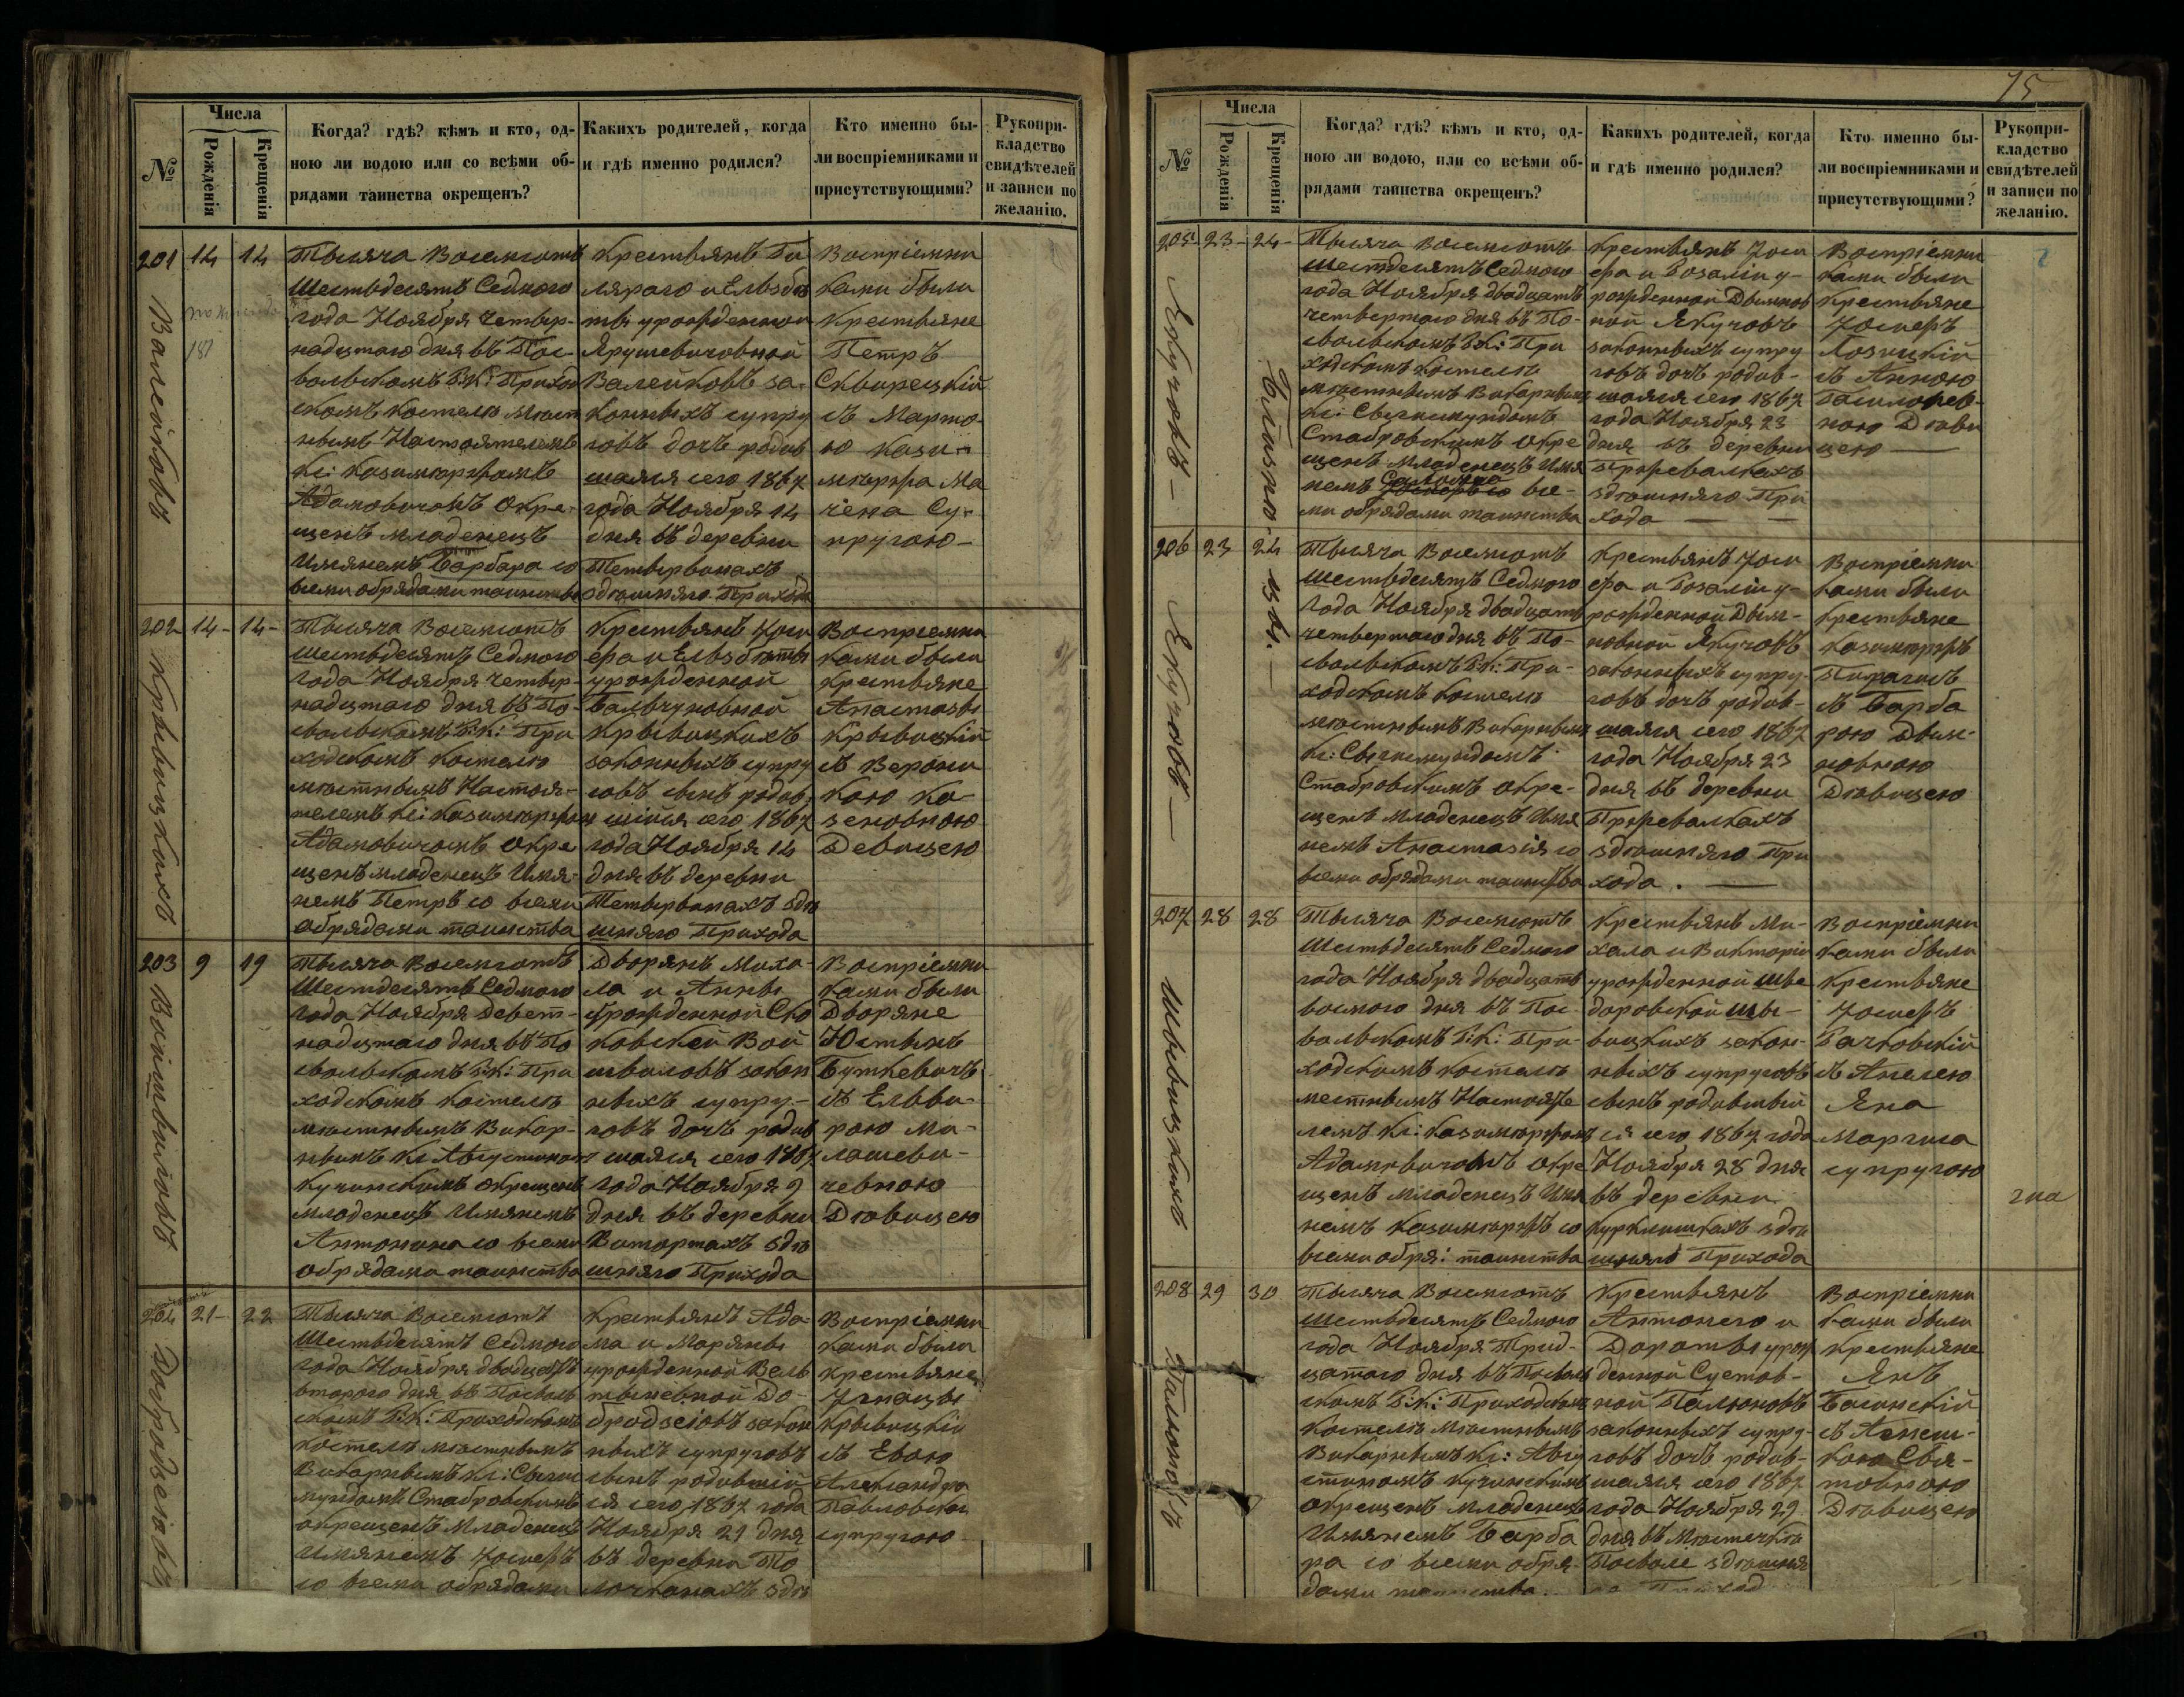 Числа
№
Рожденія
Крещенія
Когда? гдѣ? кѣмъ и кто, од-
ною ли водою или со всѣми об-
рядами таинства окрещенъ?
Какихъ родителей, когда
и гдѣ именно родился?
Кто именно бы-
ли воспріемниками и
присутствующими?
Рукопри-
кладство
свидѣтелей
и записи по
желанію.
201
14
14
Тысяча Восемсотъ
Шестьдесятъ Седмого
года Ноября четыр-
надцтаго дня въ Пос-
вольскомъ Р.К: Приход
скомъ костелѣ мѣст
нымъ Настоятелемъ
Кс: Казимѣржомъ
Адамовичомъ окре-
щенъ младенецъ
Имянемъ Барбара со
всеми обрядами таинства
Крестьянъ
ляраго и Ельзбѣ
ты урожденной
Ярушевичовной
Валейковъ за-
конныхъ супру
говъ дочь родив
шаяся сего 1867
года Ноября 14
дня въ деревни
Петырванахъ
здѣшняго Прихода
Воспріемни
ками были
крестьяне
Петръ
Скварецкій
съ Марто-
ю Кази-
мѣржа Ма
чена Су-
пругою-
Валейковъ
202
14-
14-
Тысяча Восемсотъ
Шестьдесятъ Седмого
года Ноября четыр-
надцтаго дня въ По-
свольскомъ Р.К: При
ходскомъ костелѣ
мѣстнымъ Настоя-
телемъ Кс: Казимѣржом
Адамовичомъ окре
щенъ младенецъ Имя-
немъ Петръ со всеми
обрядами таинства
Крестьянъ Іоси
фа и Ельзбѣты
урожденной
Бальчуновной
Крывицкихъ
законныхъ супру
говъ сынъ родив-
шійся сего 1867
года Ноября 14
дня въ деревни
Петырванахъ здѣ
шняго Прихода
Воспріемни
ками были
крестьяне
Анастазы
Крывицкій
съ Верони
кою Ко-
зеновною
Девицею
Крывицкихъ
203
9
19
Тысяча Восемсотъ
Шестдесятъ Седмого
года Ноября девят-
надцтаго дня въ По
свольскомъ Р.К: При
ходскомъ костелѣ
мѣстнымъ Викар-
нымъ Кс Августином
Кучинскимъ окрещенъ
младенецъ Имянемъ
Антонина со всеми
обрядами таинства
Дворянъ Миха-
ла и Анны
Урожденной Ско
ковской Вой
швиловъ закон
ныхъ супру-
говъ дочь родив
шаяся сего 1867
года Ноября 9
дня въ деревни
Витартахъ здѣ
шняго Прихода
Воспріемни
ками были
Дворяне
Юстынъ
Буткевичъ
съ Ельви-
рою Ми-
лашеви-
чевною
Дѣвицею
Войшвиловъ
204
21-
22
Тысяча Восемсотъ
Шестьдесятъ Седмого
года Ноября двадцать
второго дня въ Посволь
скомъ Р.К: Приходскомъ
костелѣ мѣстнымъ
Викарнымъ Кс: Сыгис
мундомъ Стабровскимъ
окрещенъ младенецъ
Имянемъ Іосифъ
со всеми обрядами
Крестьянъ Ада-
ма и Марянны
урожденной Вель
тыневной До-
бродзеіовъ закон
ныхъ супруговъ
сынъ родившій
ся сего 1867 года
Ноября 21 дня
въ деревни По
лочканахъ здѣ
Воспріемни
ками были
крестьяне
Игнацы
Крывицкій
съ Евою
Александра
Павловска
супругою-
Добродзеіовъ
75
Числа
№
Рожденія
Крещенія
Когда? гдѣ? кѣмъ и кто, од-
ною ли водою, или со всѣми об-
рядами таинства окрещенъ?
Какихъ родителей, когда
и гдѣ именно родился?
Кто именно бы-
ли воспріемниками и
присутствующими?
Рукопри-
кладство
свидѣтелей
и записи по
желанію.
205
23-
24-
Тысяча Восемсотъ
Шестдесятъ Седмого
года Ноября двадцать
четвертаго дня въ По-
свольскомъ Р.К: При
ходскомъ костелѣ
мѣстнымъ Викарнымъ
Кс: Сыгисмундомъ
Стабровскимъ окре
щенъ младенецъ Имя
немъ Саломея
со все-
ми обрядами таинства
Крестьянъ Іоси
фа и Розаліи у-
рожденной Дымнов
ной Якучовъ
законныхъ супру
говъ дочь родив-
шаяся сего 1867
года Ноября 23
дня въ деревни
Пржевалкахъ
здѣшняго При
хода
Воспріемни
ками были
Крестьяне
Іосифъ
Лозицкій
съ Анною
ною Дѣви
цею
Якучовъ
Близнецы.
206
23
24
Тысяча Восемсотъ
Шестьдесятъ Седмого
года Ноября двадцать
четвертаго дня въ По-
свольскомъ Р.К: При-
ходскомъ костелѣ
мѣстнымъ Викарнымъ
Кс: Сыгисмундомъ
Стабровскимъ окре-
щенъ младенецъ Имя
немъ Анастазія со
всеми обрядами таинства
Крестьянъ Іоси
фа и Розаліи у-
рожденной Дым-
новной Якучовъ
законныхъ супру-
говъ дочь родив-
шаяся сего 1867
года Ноября 23
дня въ деревни
Пржевалкахъ
здѣшняго При
хода.
Воспріемни
ками были
крестьяне
Казимѣржъ
съ Барба
рою Дым-
новною
Дѣвицею
Якучовъ
207
28
28
Тысяча Восемсотъ
Шестьдесятъ Седмого
года Ноября двадцать
восмого дня въ Пос-
вольскомъ Р.К: При-
ходскомъ костелѣ
местнымъ Настояте
лемъ Кс: Казимѣржомъ
Адамовичомъ окре
щенъ младенецъ Имя
немъ Казимѣржъ со
всеми обря: таинства
Крестьянъ Ми-
хала и Викторіи
урожденной Шве
даровской Шы-
вицкихъ закон-
ныхъ супруговъ
сынъ родившій
ся сего 1867 года
Ноября 28 дня
въ деревни
Куркликшкахъ здѣ
шняго Прихода
Воспріемни
ками были
крестьяне
Іосифъ
Бачковскій
съ Анелею
Яна
Маргиса
супругою
Шывицкихъ
208
29
30
Тысяча Восемсотъ
Шестьдесятъ Седмого
года Ноября Трид-
цатаго дня въ Посволь
скомъ Р.К: Приходском
костелѣ мѣстнымъ
Викарнымъ Кс: Авгу
стиномъ Кучинскимъ
окрещенъ младенецъ
Имянемъ Барба
ра со всеми обря-
дами таинства
Крестьянъ
Антонего и
Дороты урож
денной Суетов-
ной Палюновъ
законныхъ супру-
говъ дочь родив-
шаяся сего 1867
года Ноября 29
дня въ Мѣстечкѣ
Посволе здѣшня
Воспріемни
ками были
крестьяне
Янъ
съ Агнеш-
кою Свя-
товною
Дѣвицею